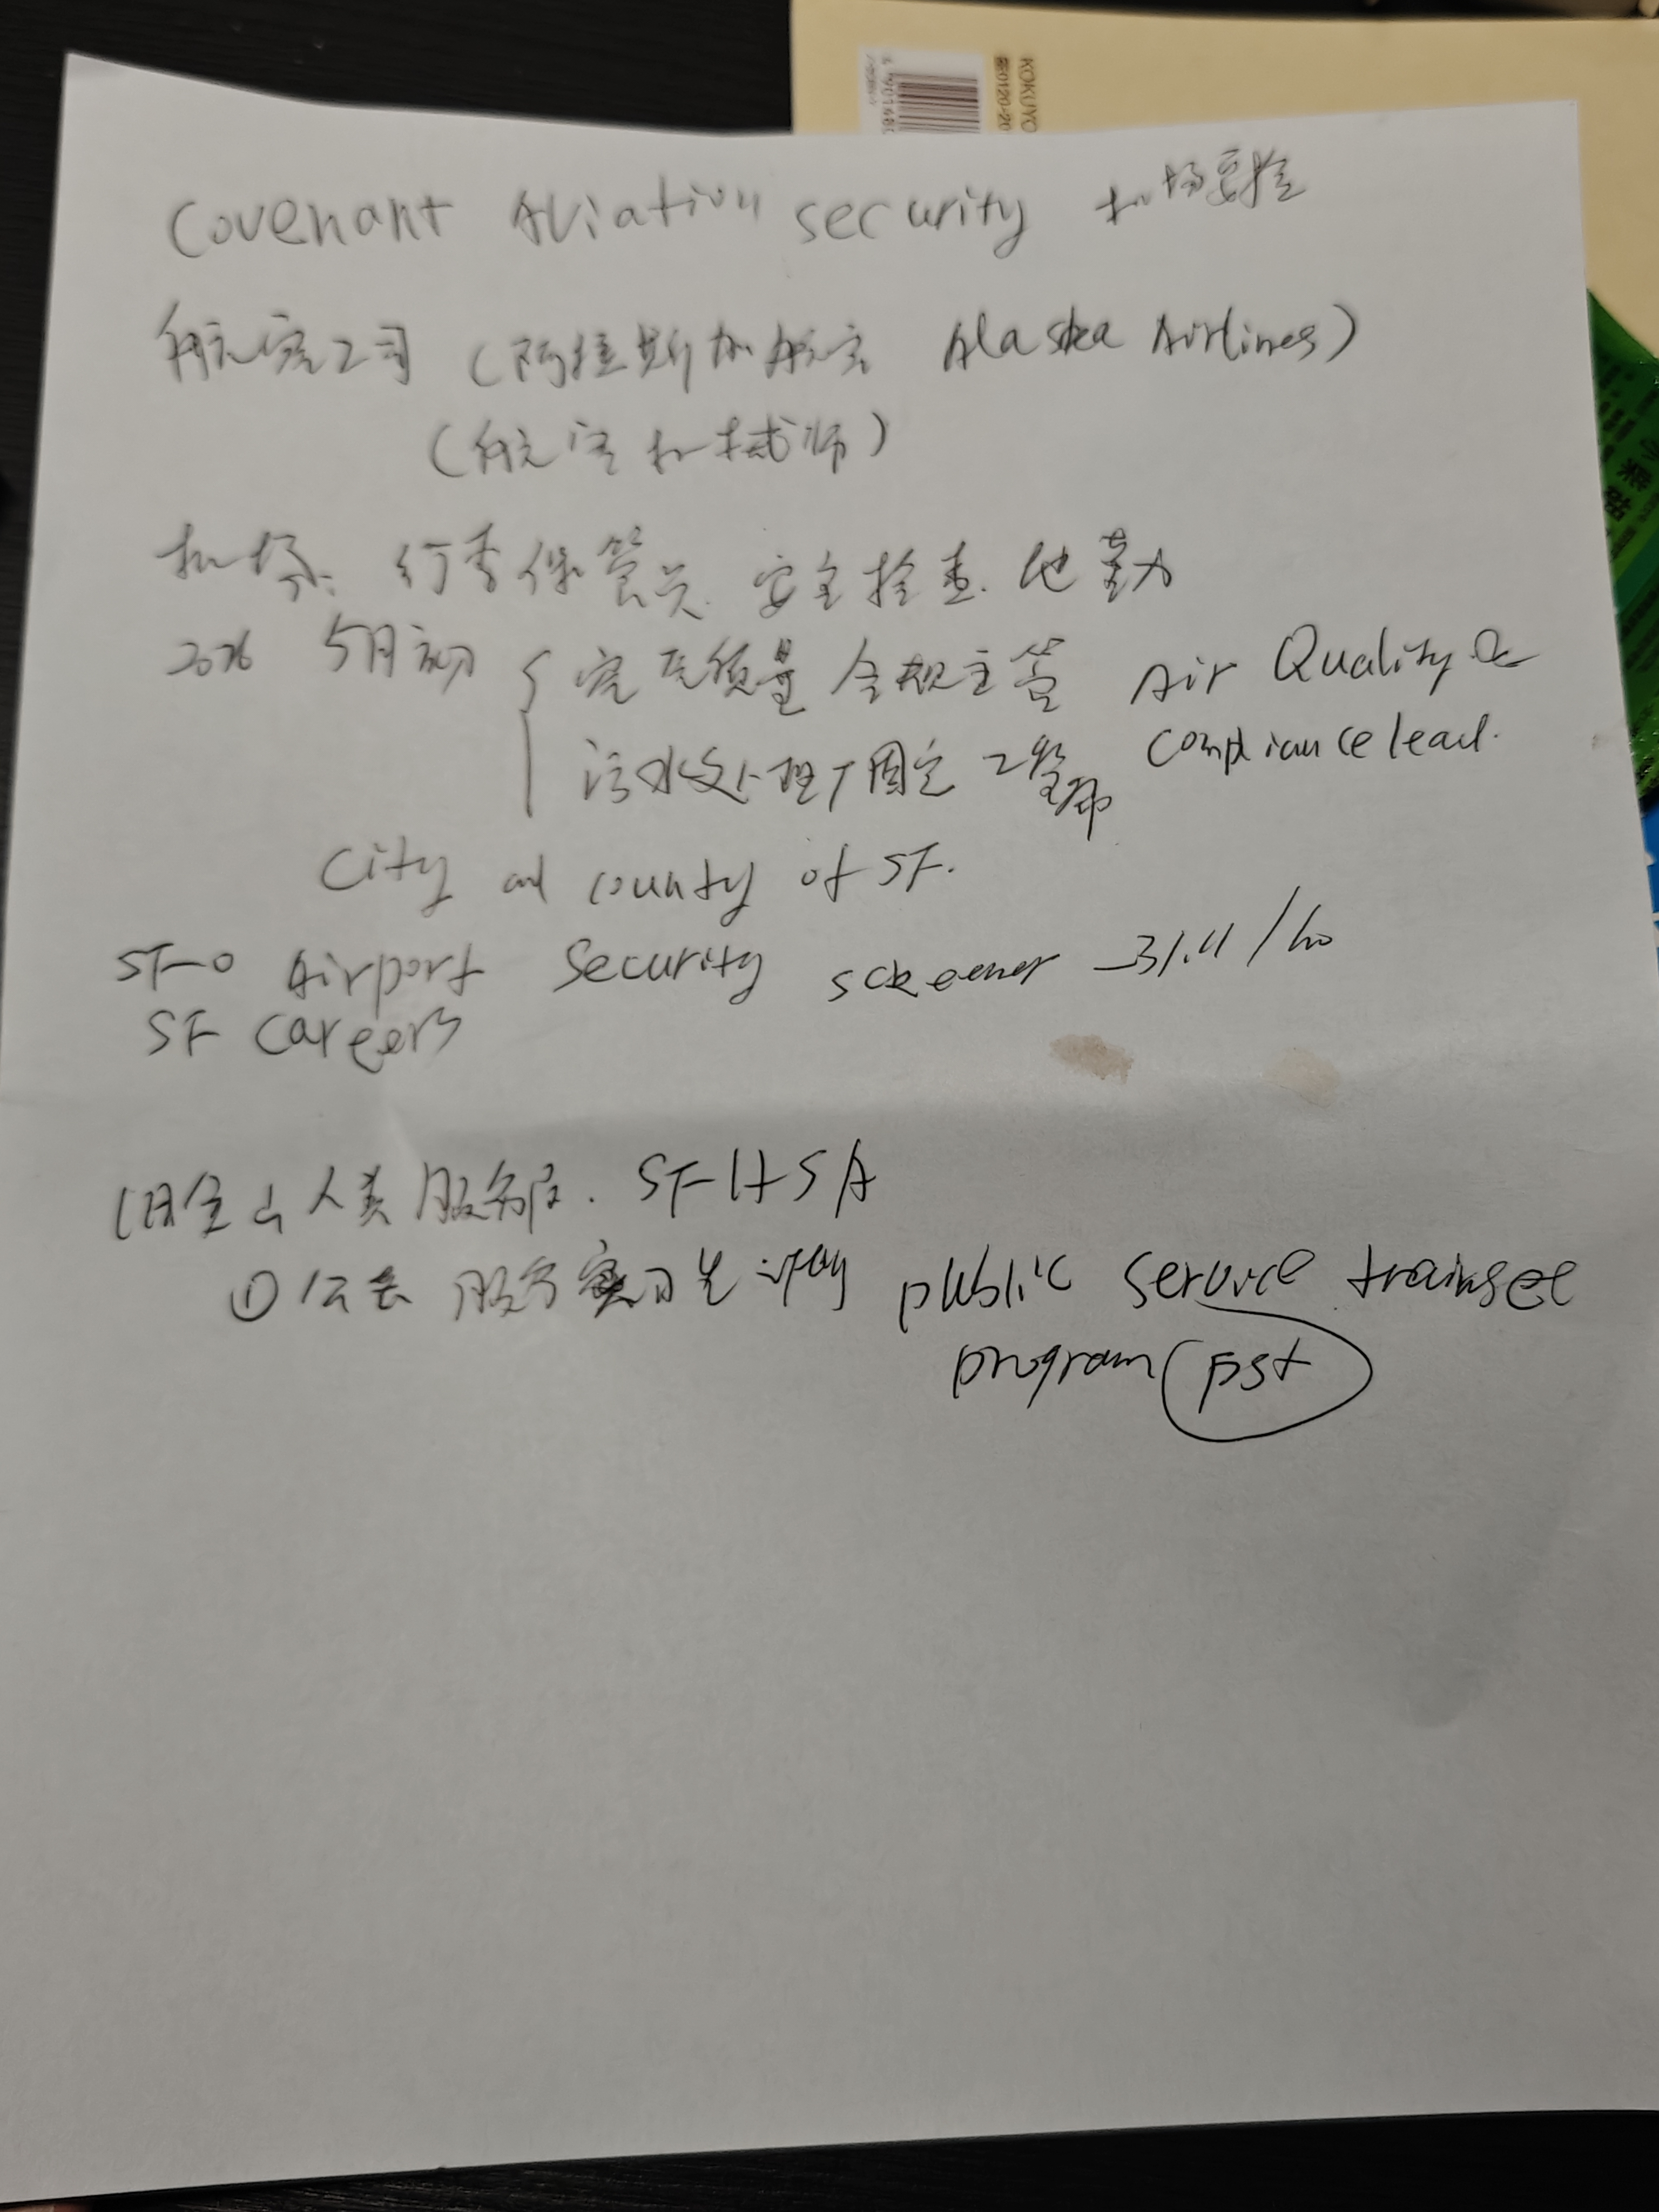 KOKUYO
Covenant Aviation security 机场安检
航空公司 (阿拉斯加航空 Alaska Airlines)
(航空机械师)
机场: 行李保管员. 安全检查. 地勤
2026 5月初 { 空气质量合规主管 Air Quality &
compliance lead.
污水处理厂固定工程师
City and county of SF.
SFO Airport Security screener 31.11/ho
SF Careers
旧金山人类服务局. SFHSA
① 公共服务实习生计划 public service trainee
program (pst)